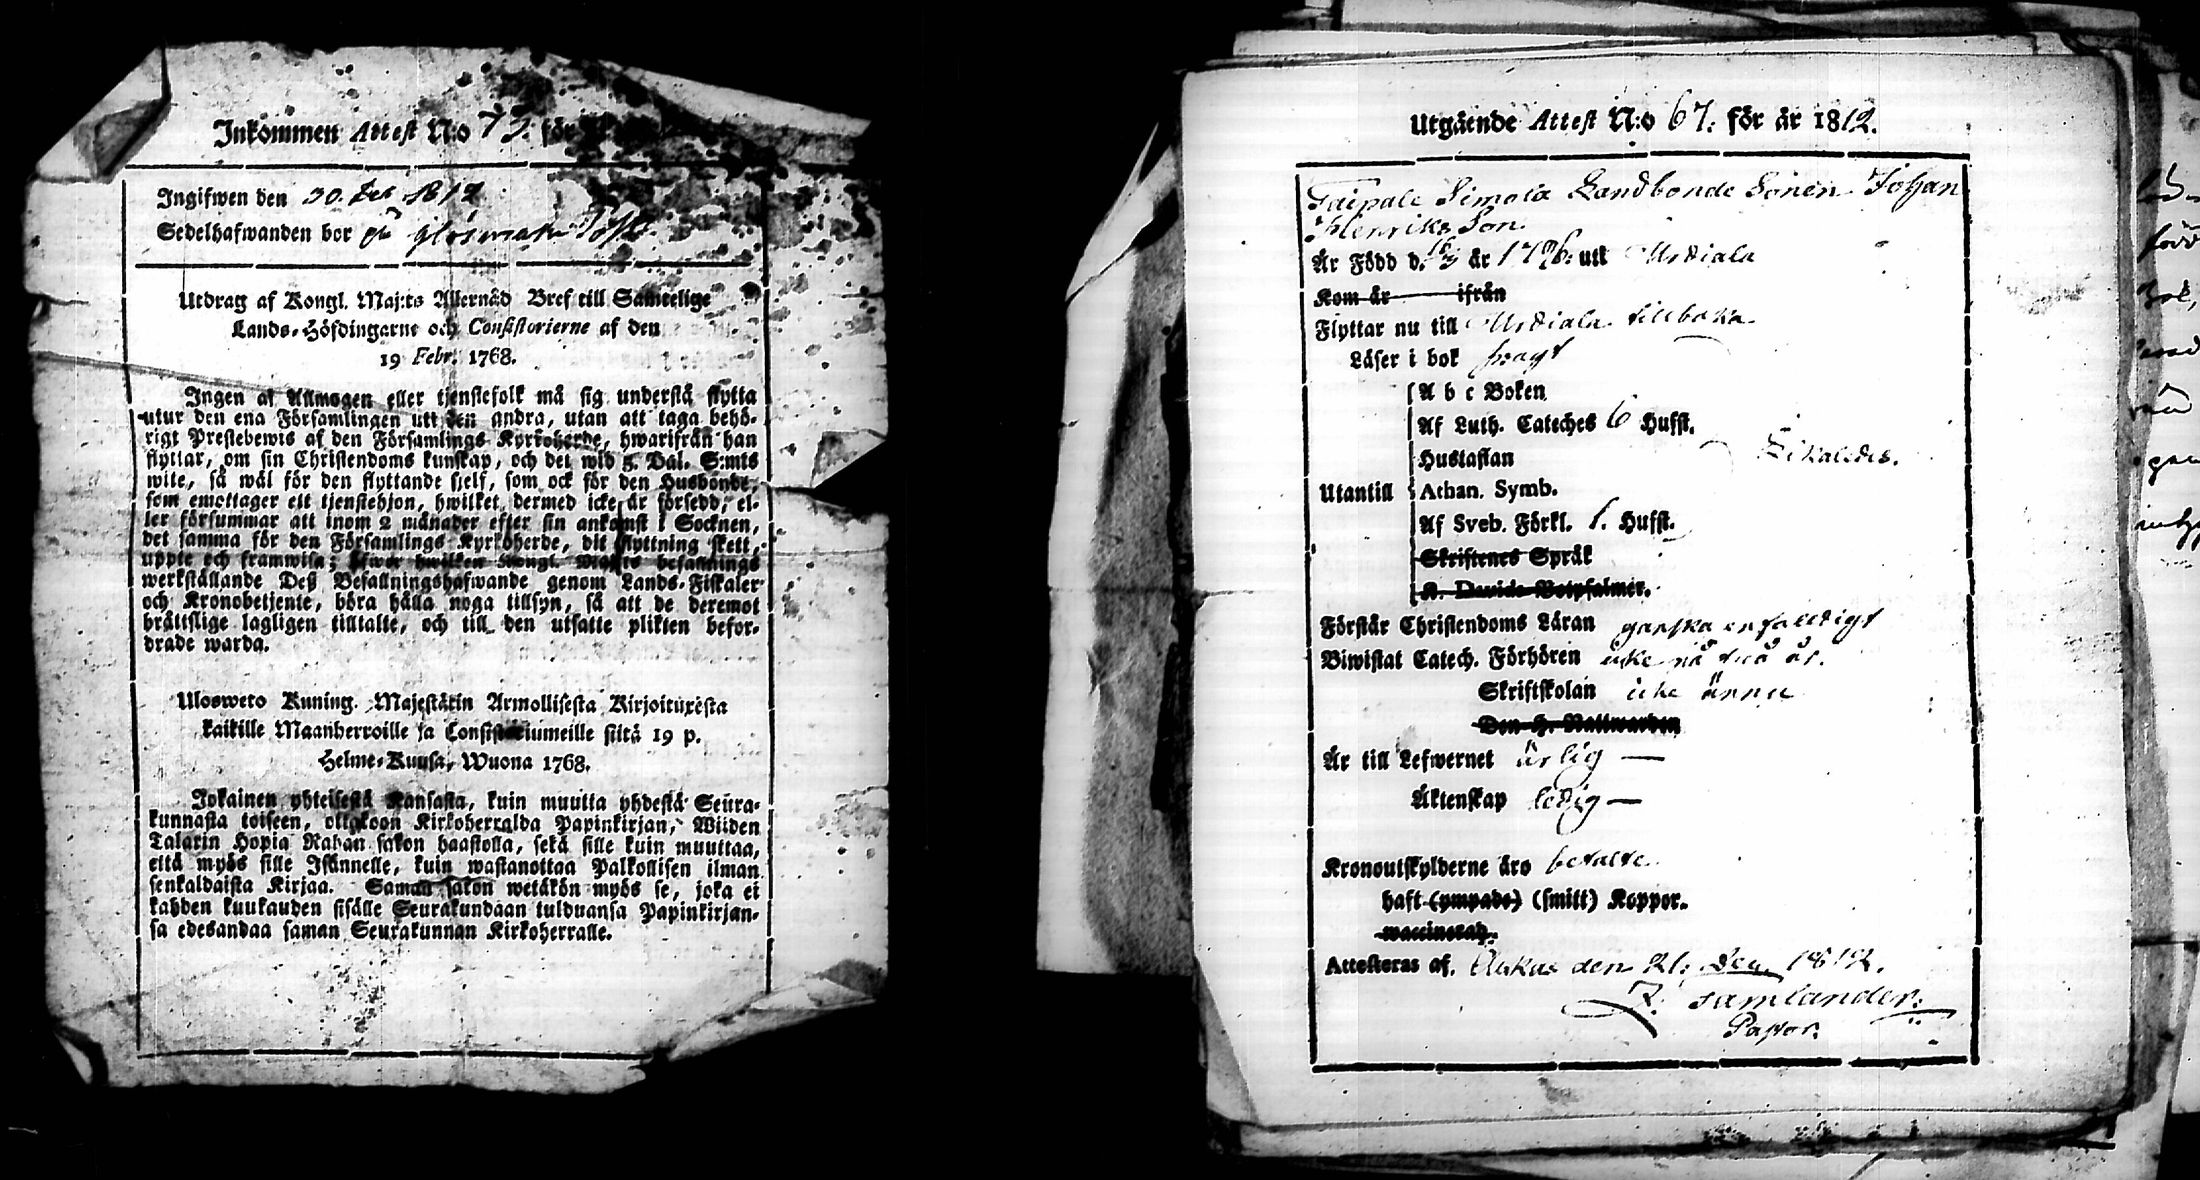 Inkommen Attest N:o 73. för
Ingifwen den 30. Dec 1812
Sedelhafwanden bor på
Utdrag af Kongl. Maj:ts Allernåd Bref till Samtelige
Lands-Höfdingarne och Consistorierne af den
19 Febr. 1768.
Ingen af Allmogen eller tjenstefolk må sig understå flytta
utur den ena Församlingen utt den andra, utan att taga behö-
rigt Prestebewis af den Församlings Kyrkoherde, hwarifrån han
flyttar, om sin Christendoms kunskap, och det wid 5. Dal. S:mts
wite, så wäl för den flyttande sjelf, som ock för den Husbonde,
som emottager ett tjenstehjon, hwilket dermed icke är försedd, el-
ler försummar att inom 2 månader efter sin ankomst i Socknen,
det samma för den Församlings Kyrkoherde, dit flyttning skett,
uppte och framwisa; öfwer hwilken Kongl. Maj:ts befallnings
werkställande Deß Befallningshafwande genom Lands-Fiskaler
och Kronobetjente, böra hålla noga tillsyn, så att de deremot
bråttslige lagligen tilltalte, och till den utsatte plikten befor-
drade warda.
Ulosweto Kuning. Majestätin Armollisesta Kirjoituxesta
kaikille Maanherroille ja Consistoriumeille siitä 19 p.
Helme-Kuusa, Wuona 1768.
Jokainen yhteisestä Kansasta, kuin muutta yhdestä Seura-
kunnasta toiseen, ottakoon Kirkoherralda Papinkirjan, Wiiden
Talarin Hopia Rahan sakon haastolla, sekä sille kuin muuttaa,
että myös sille Isännelle, kuin wastanottaa Palkollisen ilman
senkaldaista Kirjaa. Saman sakon wetäkön myös se, joka ei
kahden kuukauden sisälle Seurakundaan tulduansa Papinkirjan-
sa edesandaa saman Seurakunnan Kirkoherralle.
Utgående Attest N:o 67. för år 1812.
Taipale Simola Landbonde Sonen Johan
Henriks Son
Är Född d. 16/3 år 1796. utt Urdiala
Kom år ifrån
Flyttar nu till Urdiala tillbaka
Läser i bok svagt
A b c Boken
Af Luth. Cateches 6 Hufst.
Hustaflan
Utantill Athan. Symb.
Af Sveb. Förkl. 1. Hufst.
Skriftenes Språk
K. Davids Botpsalmer.
Förstår Christendoms Läran ganska enfaldigt
Biwistat Catech. Förhören icke på två år.
Skriftskolan icke ännu
Den H. Nattwarden
Är till Lefwernet ärlig —
Äktenskap ledig —
Kronoutskylderne äro betalte.
haft (ympade) (smitt) Koppor.
waccinerad.
Attesteras af. Akkas den 21. Dec. 1812.
Z. Tamlander.
Pastor.